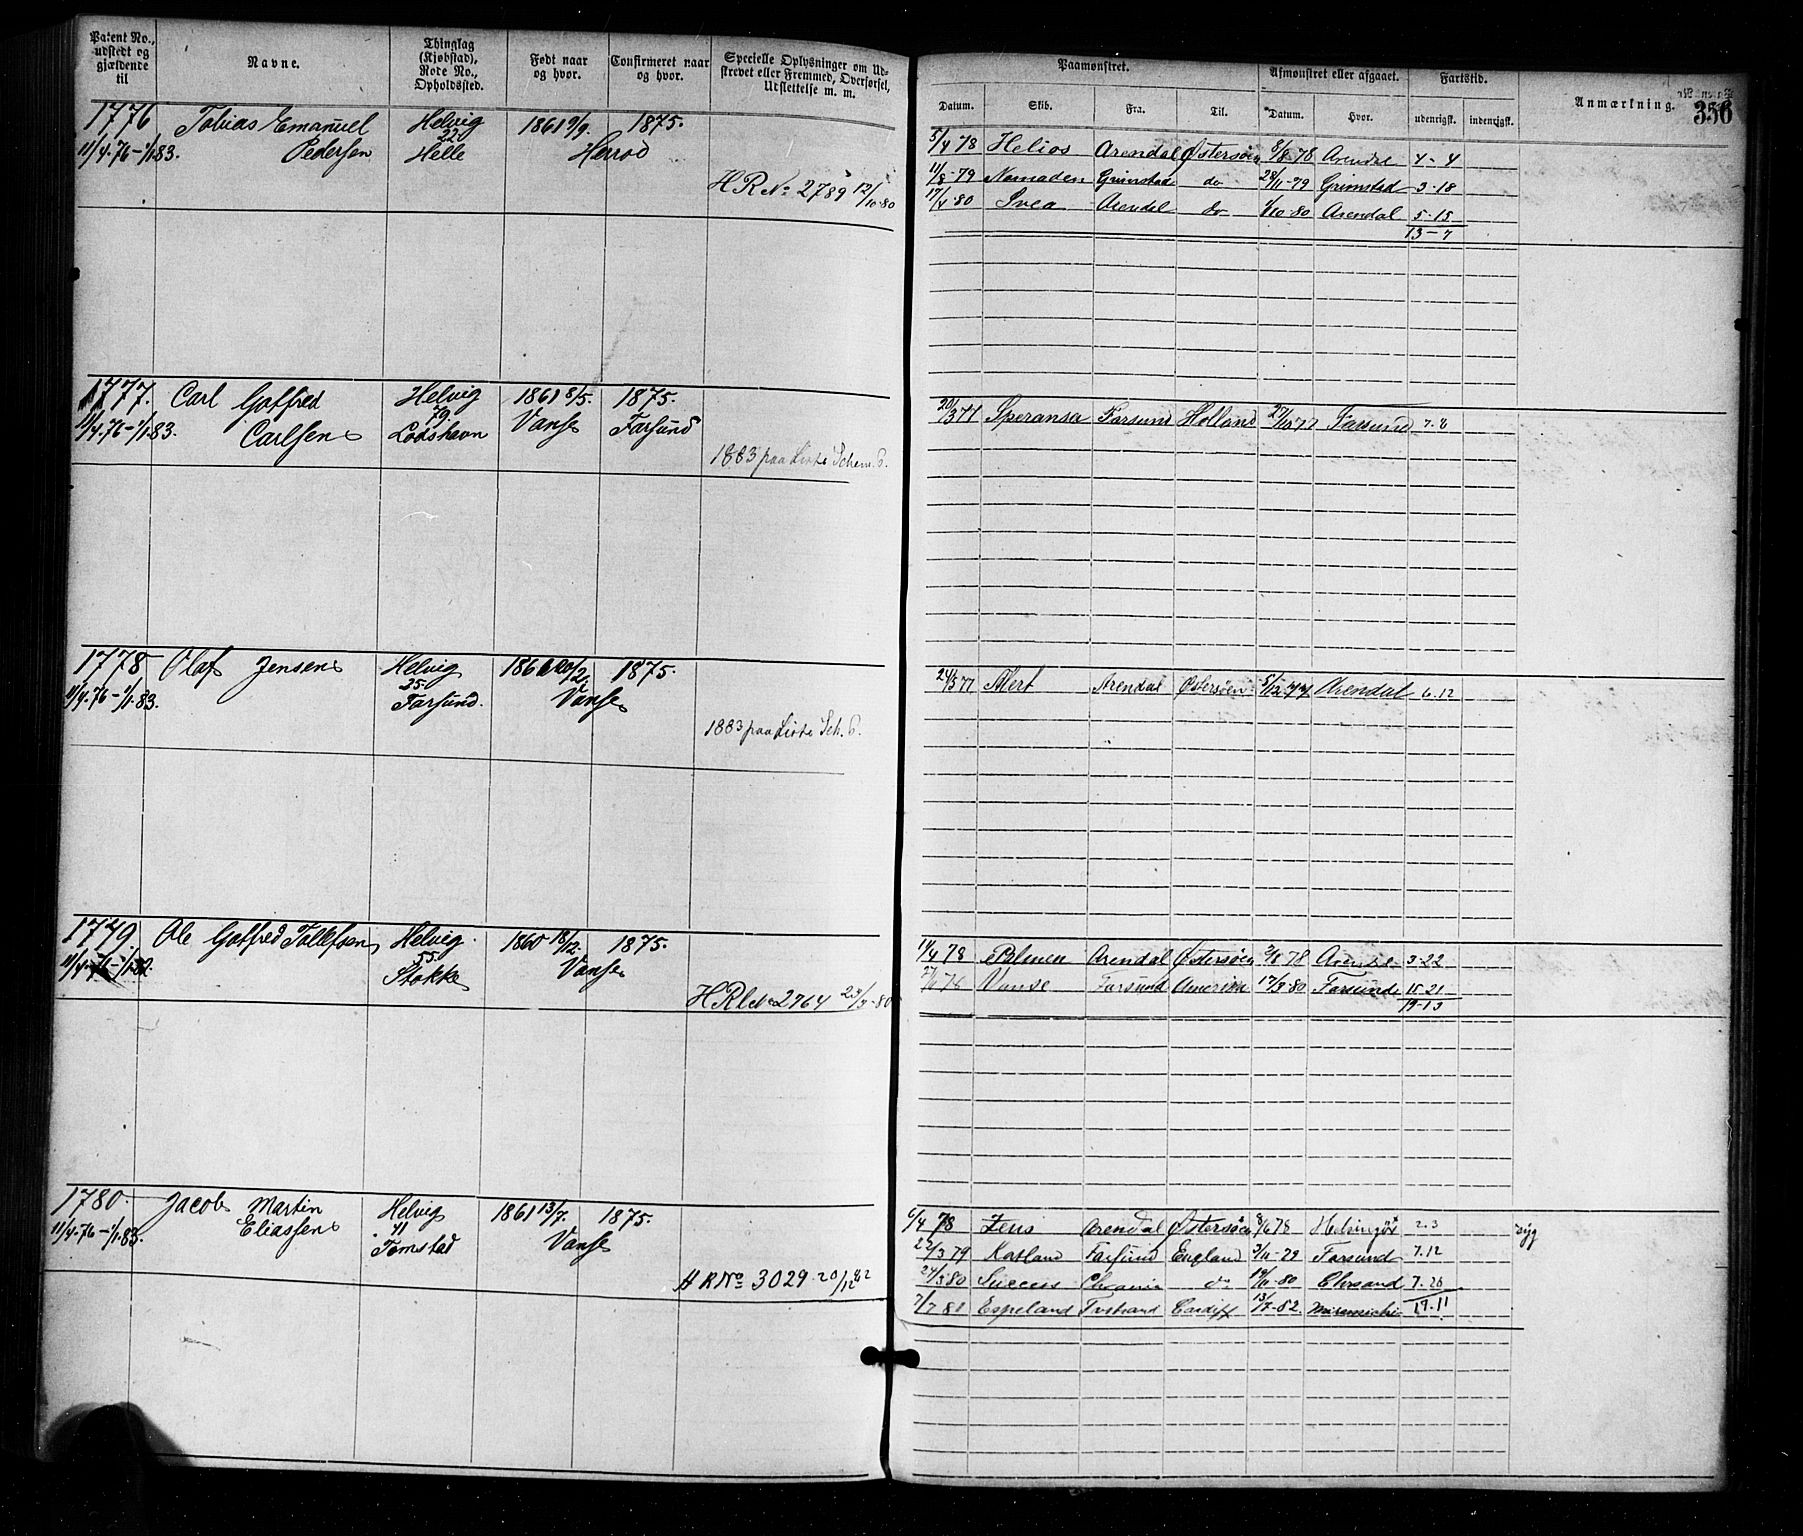 Patent No.,
udstedt og
gjældende
til
Navne.
Thinglag
(Kjøbstad),
Rode No.,
Opholdssted.
Født naar
og hvor.
Confirmeret naar
og hvor.
Specielle Oplysninger om Ud-
strevet eller Fremmed, Overførsel,
Udslettelse m. m.
1776 Tobias Emanuel Helvig 1861 9/9. 1875.
22
11/4.76-1/1.83. Pedersen Helle Herrod
H R No 2789 12/10.80
1777. Carl Gotfred Helvig 1861 8/5. 1875.
79
11/4.76-1/1.83. Carlsen Lodshavn Vanse Farsund
1883 paa Liste Schem. 6.
1778 Olaf Jensen Helvig 20/2. 1875.
35.
11/4.76-1/1.83. Farsund. Vanse
1883 paa Liste Sch. 6.
1779. Ole Gotfred Tollefsen Helvig. 1860 18/12. 1875.
55.
11/4.76- Stokke Vanse
2764
1780. Jacob Martin Helvig 1861 13/7. 1875.
41
11/4.76-1/1.83. Eliassen Tomstad Vanse
H R No 3029 20/12 82
Paamønstret.
Afmønstret eller afgaaet.
Fartstid.
Anmærkning.
356
Datum. Skib. Fra. Til. Datum. Hvor. udenrigst. indenrigst.
5/4 78 Helios Arendal Østersøen 8/8 78 Arendal 4-4
11/8-79 Nomaden Grimstad do 28/11-79 Grimstad 3-18
17/4.80 Svea Arendal do 1/10-80 Arendal 5-15
13-7
20/3 77 Speransa Farsund Holland 27/10 77 Farsund 7.8
24/5 77 Alert Arendal Østersøen 5/12-77 Arendal 6.12
14/4 78 Arendal Østersøen 78 Arendal 3-22
Vanse Farsund Amerika 17/3.80 Farsund 15.21
19-13
6/4 78 Zeus Arendal Østersøen 8/6 78 Helsingør 2.3 syg
22/3 79 Katland Farsund England 3/11-79 Farsund 7.12
24/3 80 Success do 19/11-80 Chrsand 7.26
7/7 81 Espeland Tvedestrand Cardiff 13/7-82. Miramichi 17.11